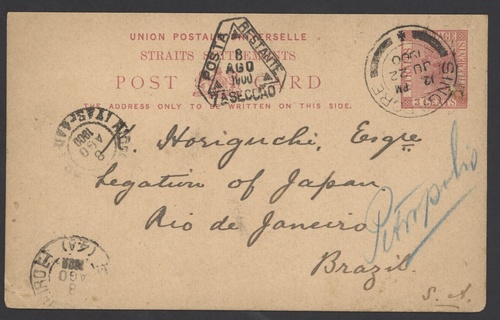 UNION POSTALE UNIVERSELLE
STRAITS SETTLEMENTS
POST CARD
THE ADDRESS ONLY TO BE WRITTEN ON THIS SIDE.
POSTA RESTANTE
8
AGO
1900
SINGAPORE
PM
JU 22
1900
8
AGO
1900
Horiguchi, Esqre
Legation of Japan
Rio de Janeiro
Brazil.
Petropolis
S. A.
(4A)
8
AGO